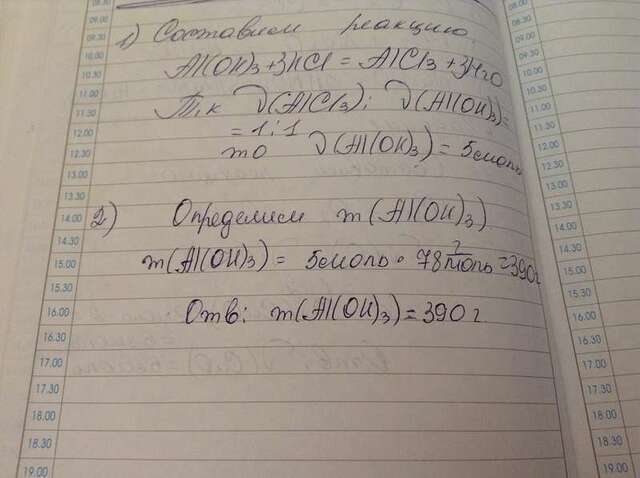 1) Составим реакцию
Al(OH)3+3HCl = AlCl3+3H2O
Т,к ν(AlCl3): ν(Al(OH)3)=
= 1:1
то ν(Al(OH)3) = 5моль
2) Определим m(Al(OH)3)
m(Al(OH)3) = 5моль • 78г/моль =390г
Отв: m(Al(OH)3)=390г
09.00
09.30
10.00
10.30
11.00
11.30
12.00
12.30
13.00
13.30
14.00
14.30
15.00
15.30
16.00
16.30
17.00
17.30
18.00
18.30
19.00
08.30
09.00
09.30
10.00
10.30
11.00
11.30
12.00
12.30
13.00
13.30
14.00
14.30
15.00
15.30
16.00
16.30
17.00
17.30
18.00
18.30
19.00